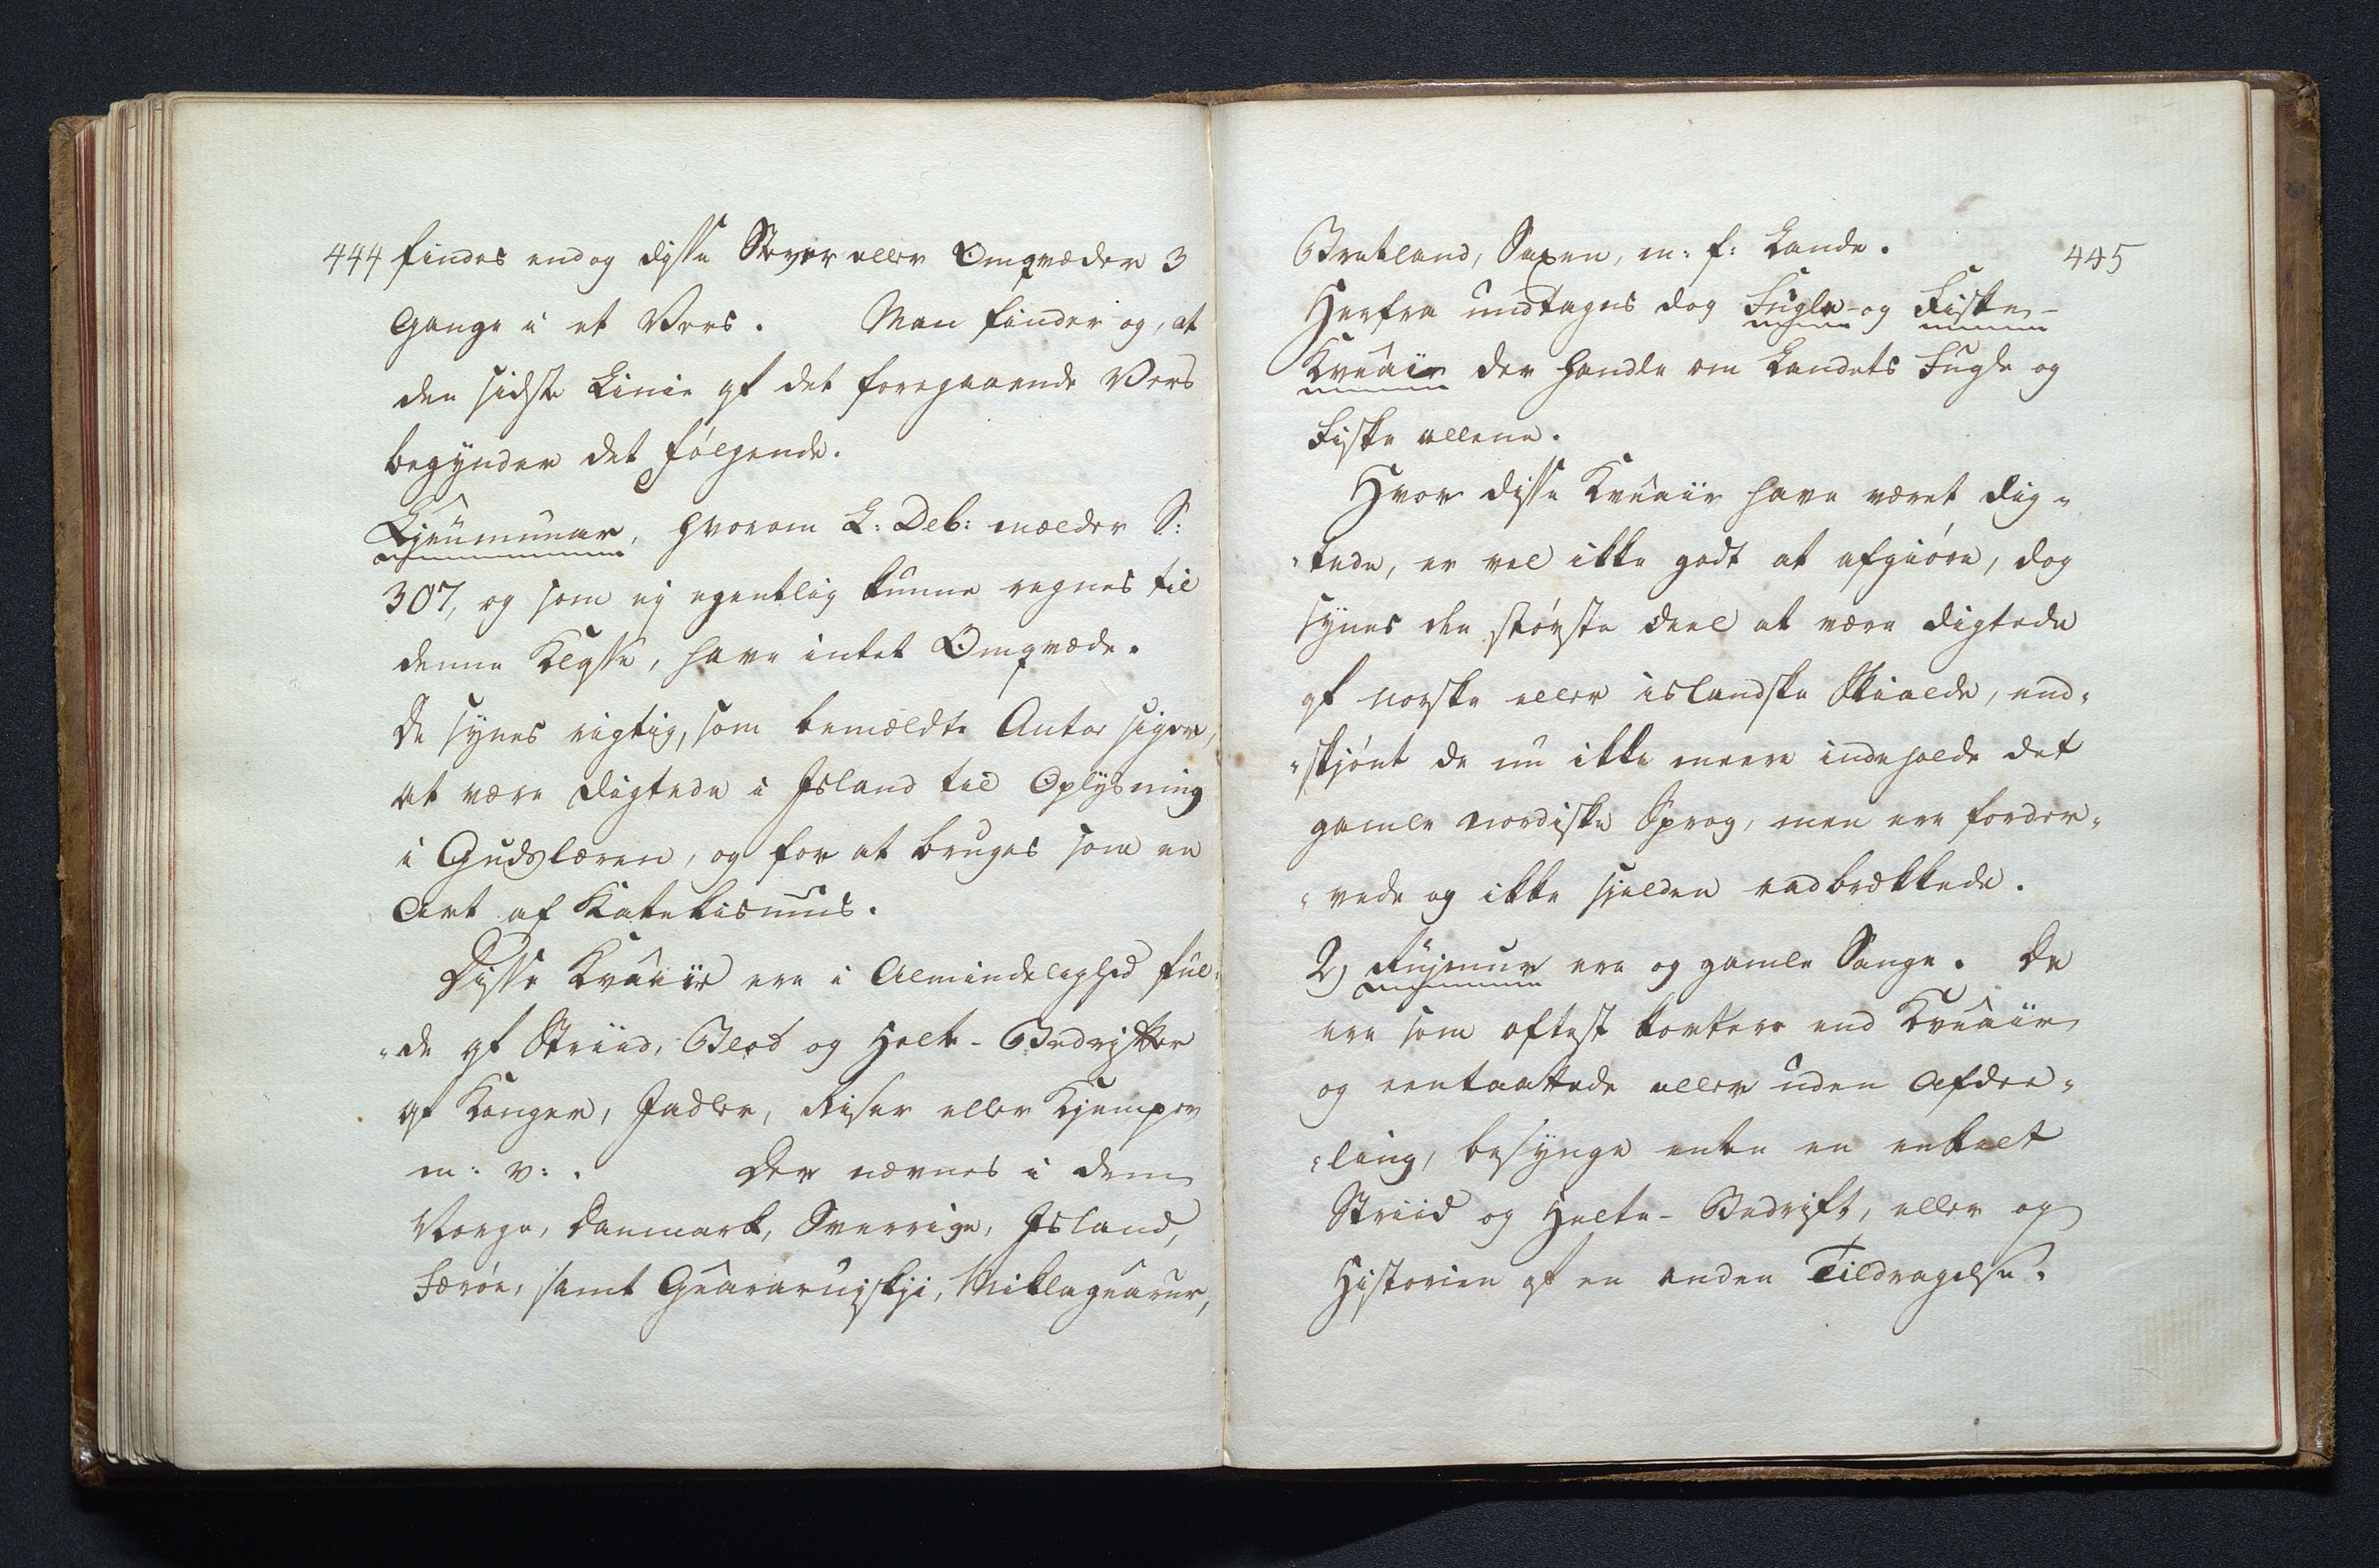 444 findes endog disse Stever eller Omqvæder 3
Gange i et Vers. Man finder og, at
den sidste Linie af det foregaaende Vers
begynder det følgende.
Ljeumunar, hvorom L: Deb: mælder S:
307, og som ej egentlig kunne regnes til
denne Klasse, have intet Omqvæde.
De synes rigtig, som bemældte Autor siger,
at være digtede i Island til Oplysning
i Gudslæren, og for at bruges som en
Art af Katekismus.
Disse Kvêair ere i Almindelighed ful-
-de af Striid, Blod og Helte-Bedrifter
af Konger, Jadler, Riser eller Kjemper
m: v: . Der nævnes i dem
Norge, Danmark, Sverrige, Island,
Færøe, samt Gêararujskji, Miklagêarur,
Bretland, Saxen, m: f: Lande. 445
Herfra undtages dog Fugle- og Fiske-
Kvêair der handle om Landets Fugle og
Fiske allene.
Hvor disse Kvêair have været dig-
-tede, er vel ikke godt at afgiøre, dog
synes den største Deel at være digtede
af norske eller islandske Skialde, end-
-skjønt de nu ikke meere indeholde det
gamle nordiske Sprog, men ere forder-
-vede og ikke sjelden radbrækkede.
2) Rujmur ere og gamle Sange. De
ere som oftest kortere end Kvêair
og eentaattede eller uden Afdee-
-ling, besynge enten en enkelt
Striid og Helte-Bedrift, eller og
Historien af en anden Tildragelse.